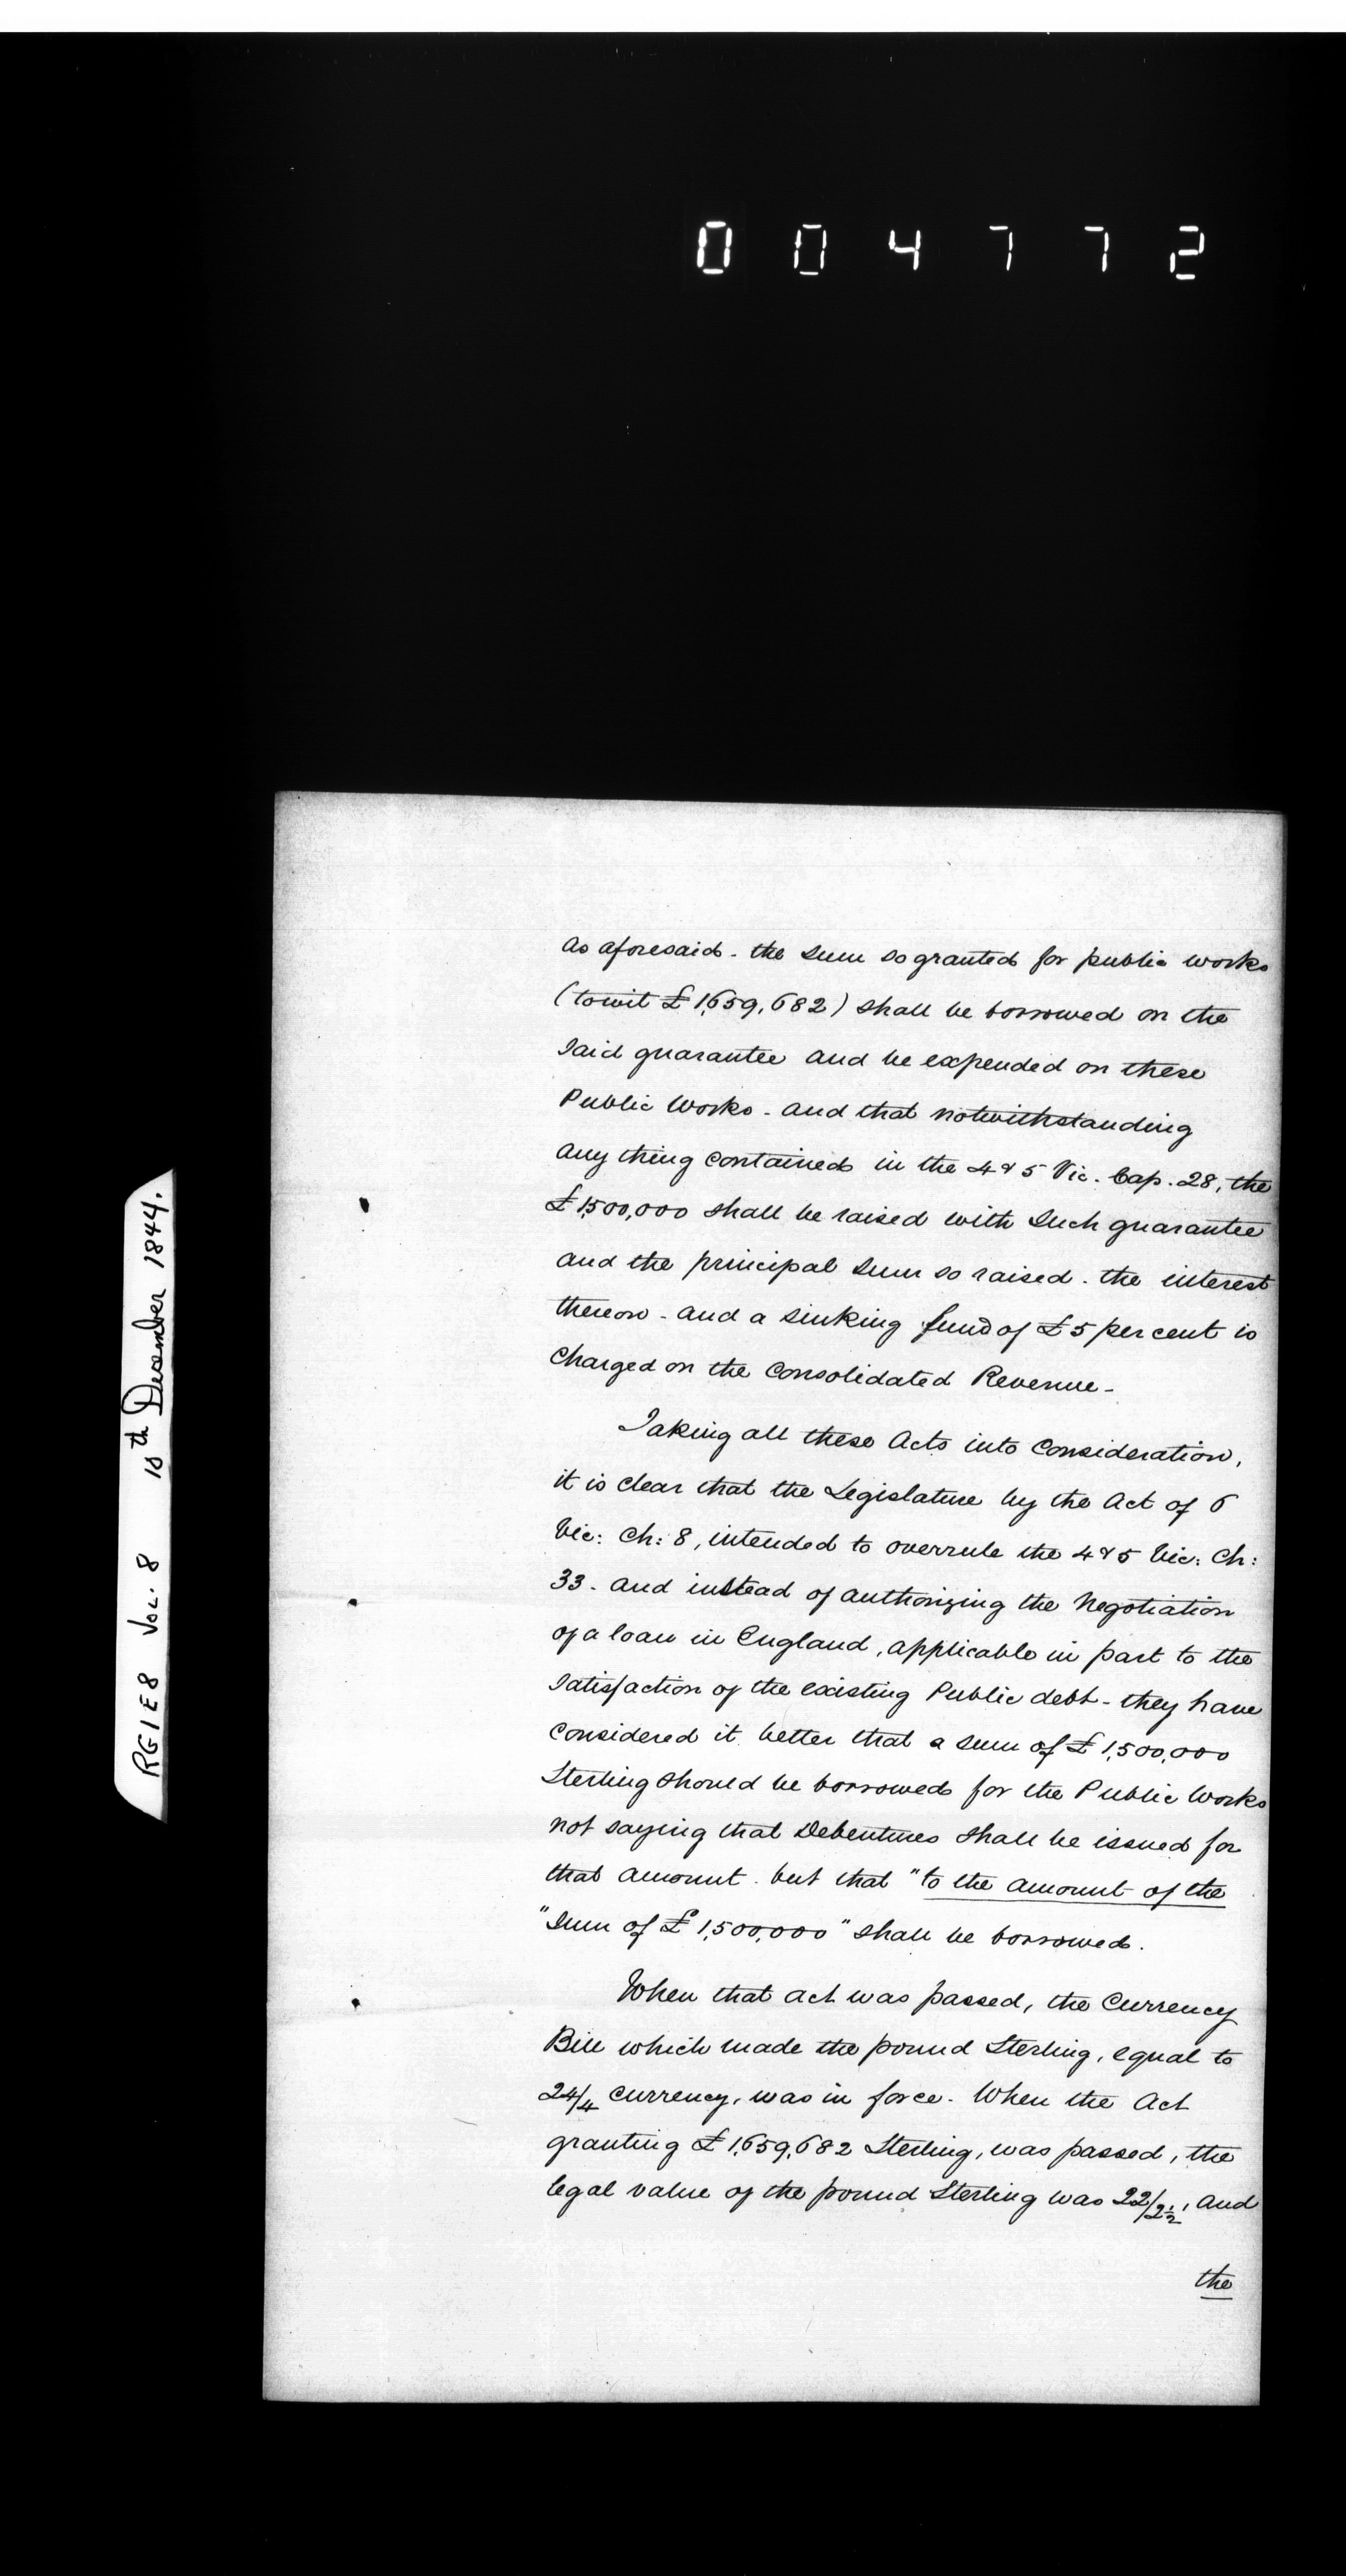 004772
RG1E8 Vol. 8 18th December 1844.
as aforesaid - the sum so granted for public works
(to wit £1,659,682) shall be borrowed on the
said guarantee and be expended on these
Public Works - and that notwithstanding
any thing contained in the 4 & 5 Vic. Cap. 28, the
£1,500,000 shall be raised with such guarantee
and the principal sum so raised - the interest
thereon - and a sinking fund of £5 per cent is
charged on the consolidated Revenue -
Taking all these Acts into consideration,
it is clear that the Legislature by the Act of 6
Vic: Ch: 8, intended to overrule the 4 & 5 Vic: Ch:
33 - and instead of authorizing the Negotiation
of a loan in England, applicable in part to the
satisfaction of the existing Public debt - they have
considered it better that a sum of £1,500,000
Sterling should be borrowed for the Public Works
not saying that Debentures shall be issued for
that amount - but that "to the amount of the
"sum of £1,500,000" shall be borrowed.
When that act was passed, the Currency
Bill which made the pound Sterling, equal to
24/4 currency, was in force - When the Act
granting £1,659,682 Sterling, was passed, the
legal value of the pound Sterling was 22/2½, and
the